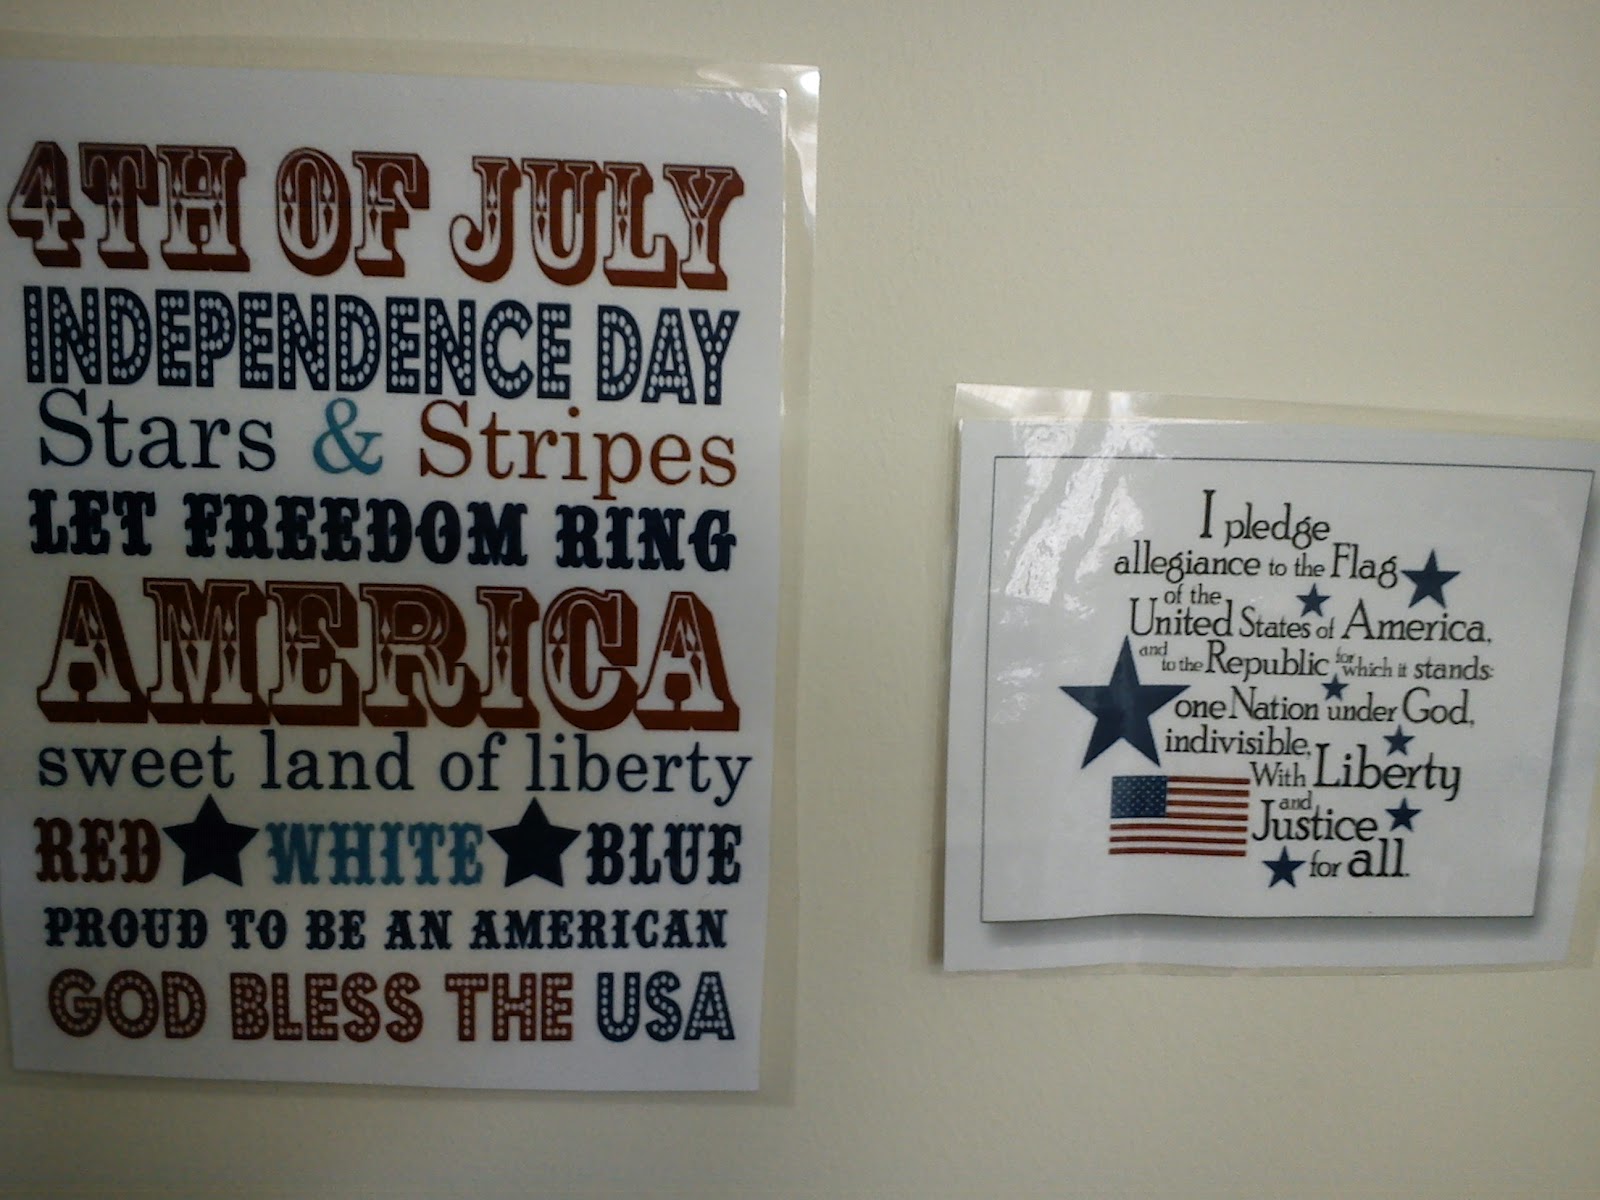 4TH OF JULY
INDEPENDENCE DAY
Stars & Stripes
LET FREEDOM RING
AMERICA
sweet land of liberty
RED WHITE BLUE
PROUD TO BE AN AMERICAN
GOD BLESS THE USA
I pledge
allegiance to the Flag
of the
United States of America,
and to the Republic for which it stands:
one Nation under God,
indivisible,
With Liberty
and
Justice
for all.